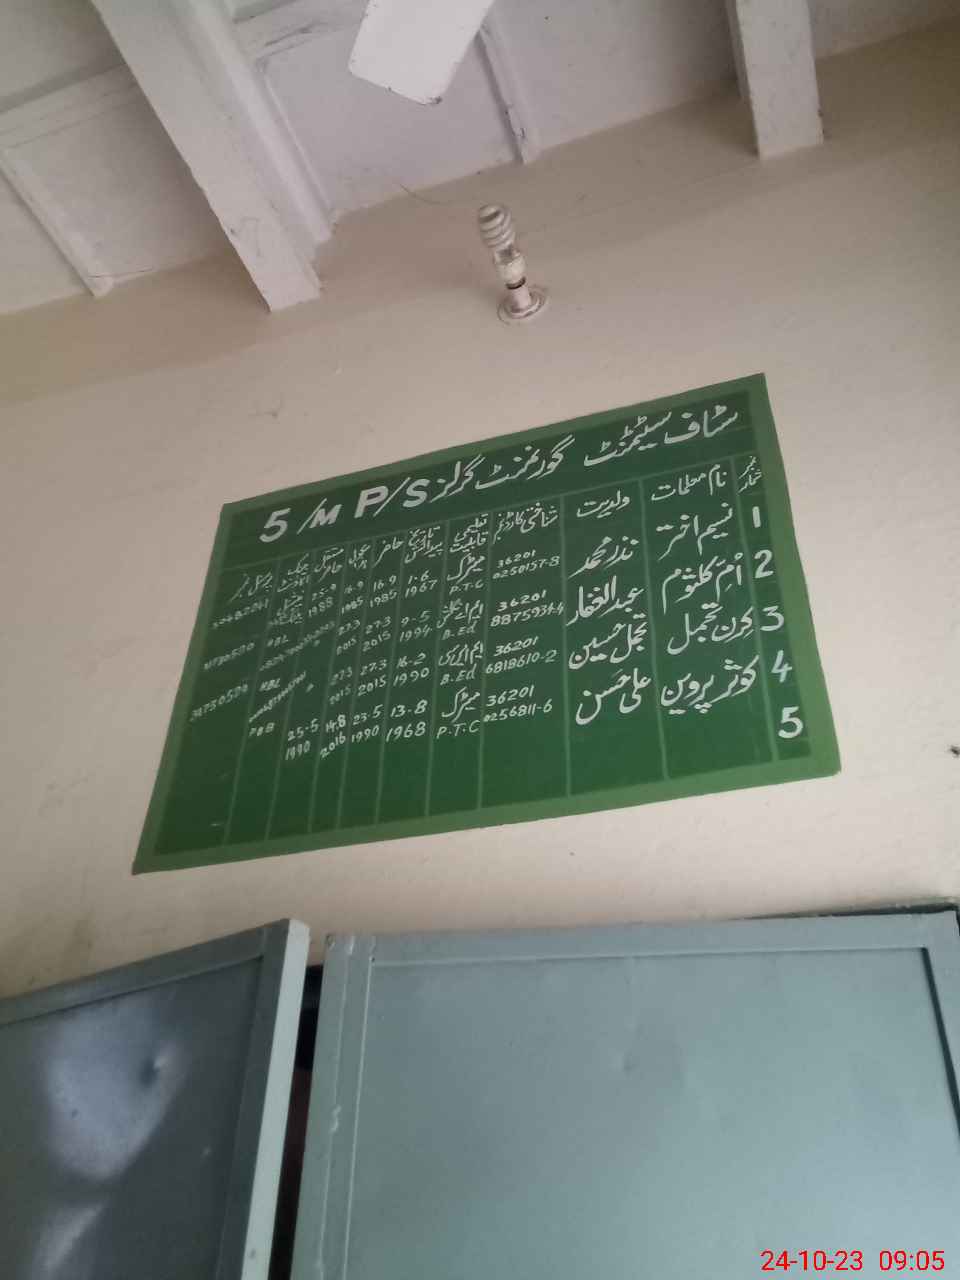 سٹاف سٹیٹمنٹ گورنمنٹ گرلز P/S 5/M
نمبر شمار نام معلمات ولدیت شناختی کارڈ نمبر تعلیمی قابلیت تاریخ پیدائش حاضر سکول مستقل حاضر بینک اکاؤنٹ پرسنل نمبر
1 نسیم اختر نذر محمد 36201 0250157-8 میٹرک P.T.C 1-6 1967 16-9 1985 16-9 1985 25-9 1988
2 اُمِ کلثوم عبدالغفار 36201 8875934-4 ایم اے B.Ed 9-5 1994 27-3 2015 27-3 2015 HBL
3 کرن تجمل تجمل حسین 36201 6818610-2 B.Ed 16-2 1990 27-3 2015 27-3 2015 HBL
4 کوثر پروین علی حسن 36201 0256811-6 میٹرک P.T.C 13-8 1968 23-5 1990 14-8 2016 25-5 1990
5
24-10-23 09:05